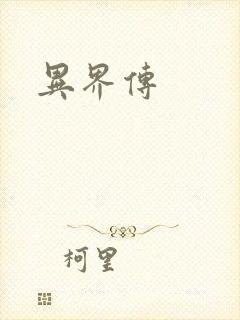 異界傳
柯里